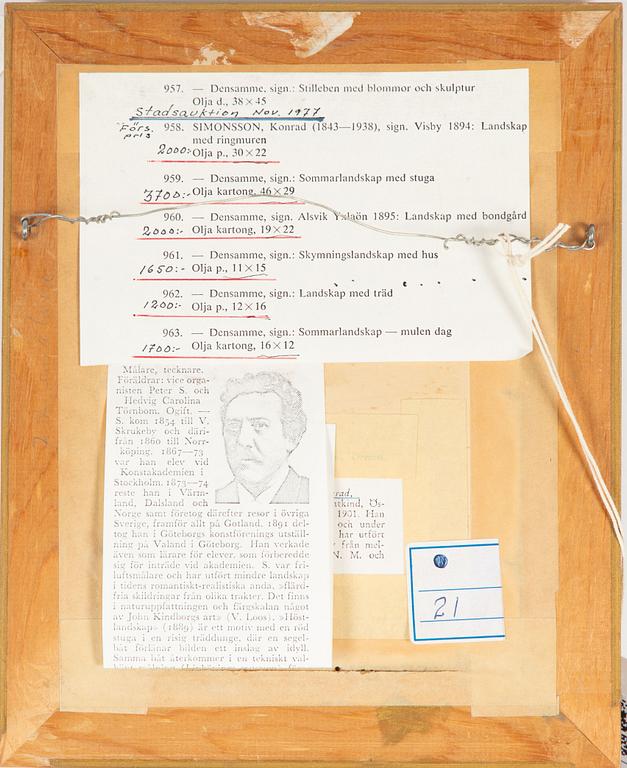 957. — Densamme, sign.: Stilleben med blommor och skulptur
Olja d., 38×45
Stadsauktion Nov. 1977
Förs. pris
958. SIMONSSON, Konrad (1843—1938), sign. Visby 1894: Landskap
med ringmuren
2000:- Olja p., 30×22
959. — Densamme, sign.: Sommarlandskap med stuga
3700:- Olja kartong, 46×29
960. — Densamme, sign. Alsvik 1895: Landskap med bondgård
2000:- Olja kartong, 19×22
961. — Densamme, sign.: Skymningslandskap med hus
1650:- Olja p., 11×15
962. — Densamme, sign.: Landskap med träd
1200:- Olja p., 12×16
963. — Densamme, sign.: Sommarlandskap — mulen dag
1700:- Olja kartong, 16×12
Målare, tecknare.
Föräldrar: vice orga-
nisten Peter S. och
Hedvig Carolina
Törnbom. Ogift. —
S. kom 1854 till V.
Skrukeby och däri-
från 1860 till Norr-
köping. 1867—73
var han elev vid
Konstakademien i
Stockholm. 1873—74
reste han i Värm-
land, Dalsland och
Norge samt företog därefter resor i övriga
Sverige, framför allt på Gotland. 1891 del-
tog han i Göteborgs konstförenings utställ-
ning på Valand i Göteborg. Han verkade
även som lärare för elever, som förberedde
sig för inträde vid akademien. S. var fri-
luftsmålare och har utfört mindre landskap
i tidens romantiskt-realistiska anda, »flärd-
fria skildringar från olika trakter. Det finns
i naturuppfattningen och färgskalan något
av John Kindborgs art» (V. Loos). »Höst-
landskap» (1889) är ett motiv med en röd
stuga i en risig träddunge, där en segel-
båt förlänar bilden ett inslag av idyll.
Samma båt återkommer i en tekniskt väl-
rad,
tkind, Ös-
1901. Han
och under
har utfört
från mel-
N. M. och
21